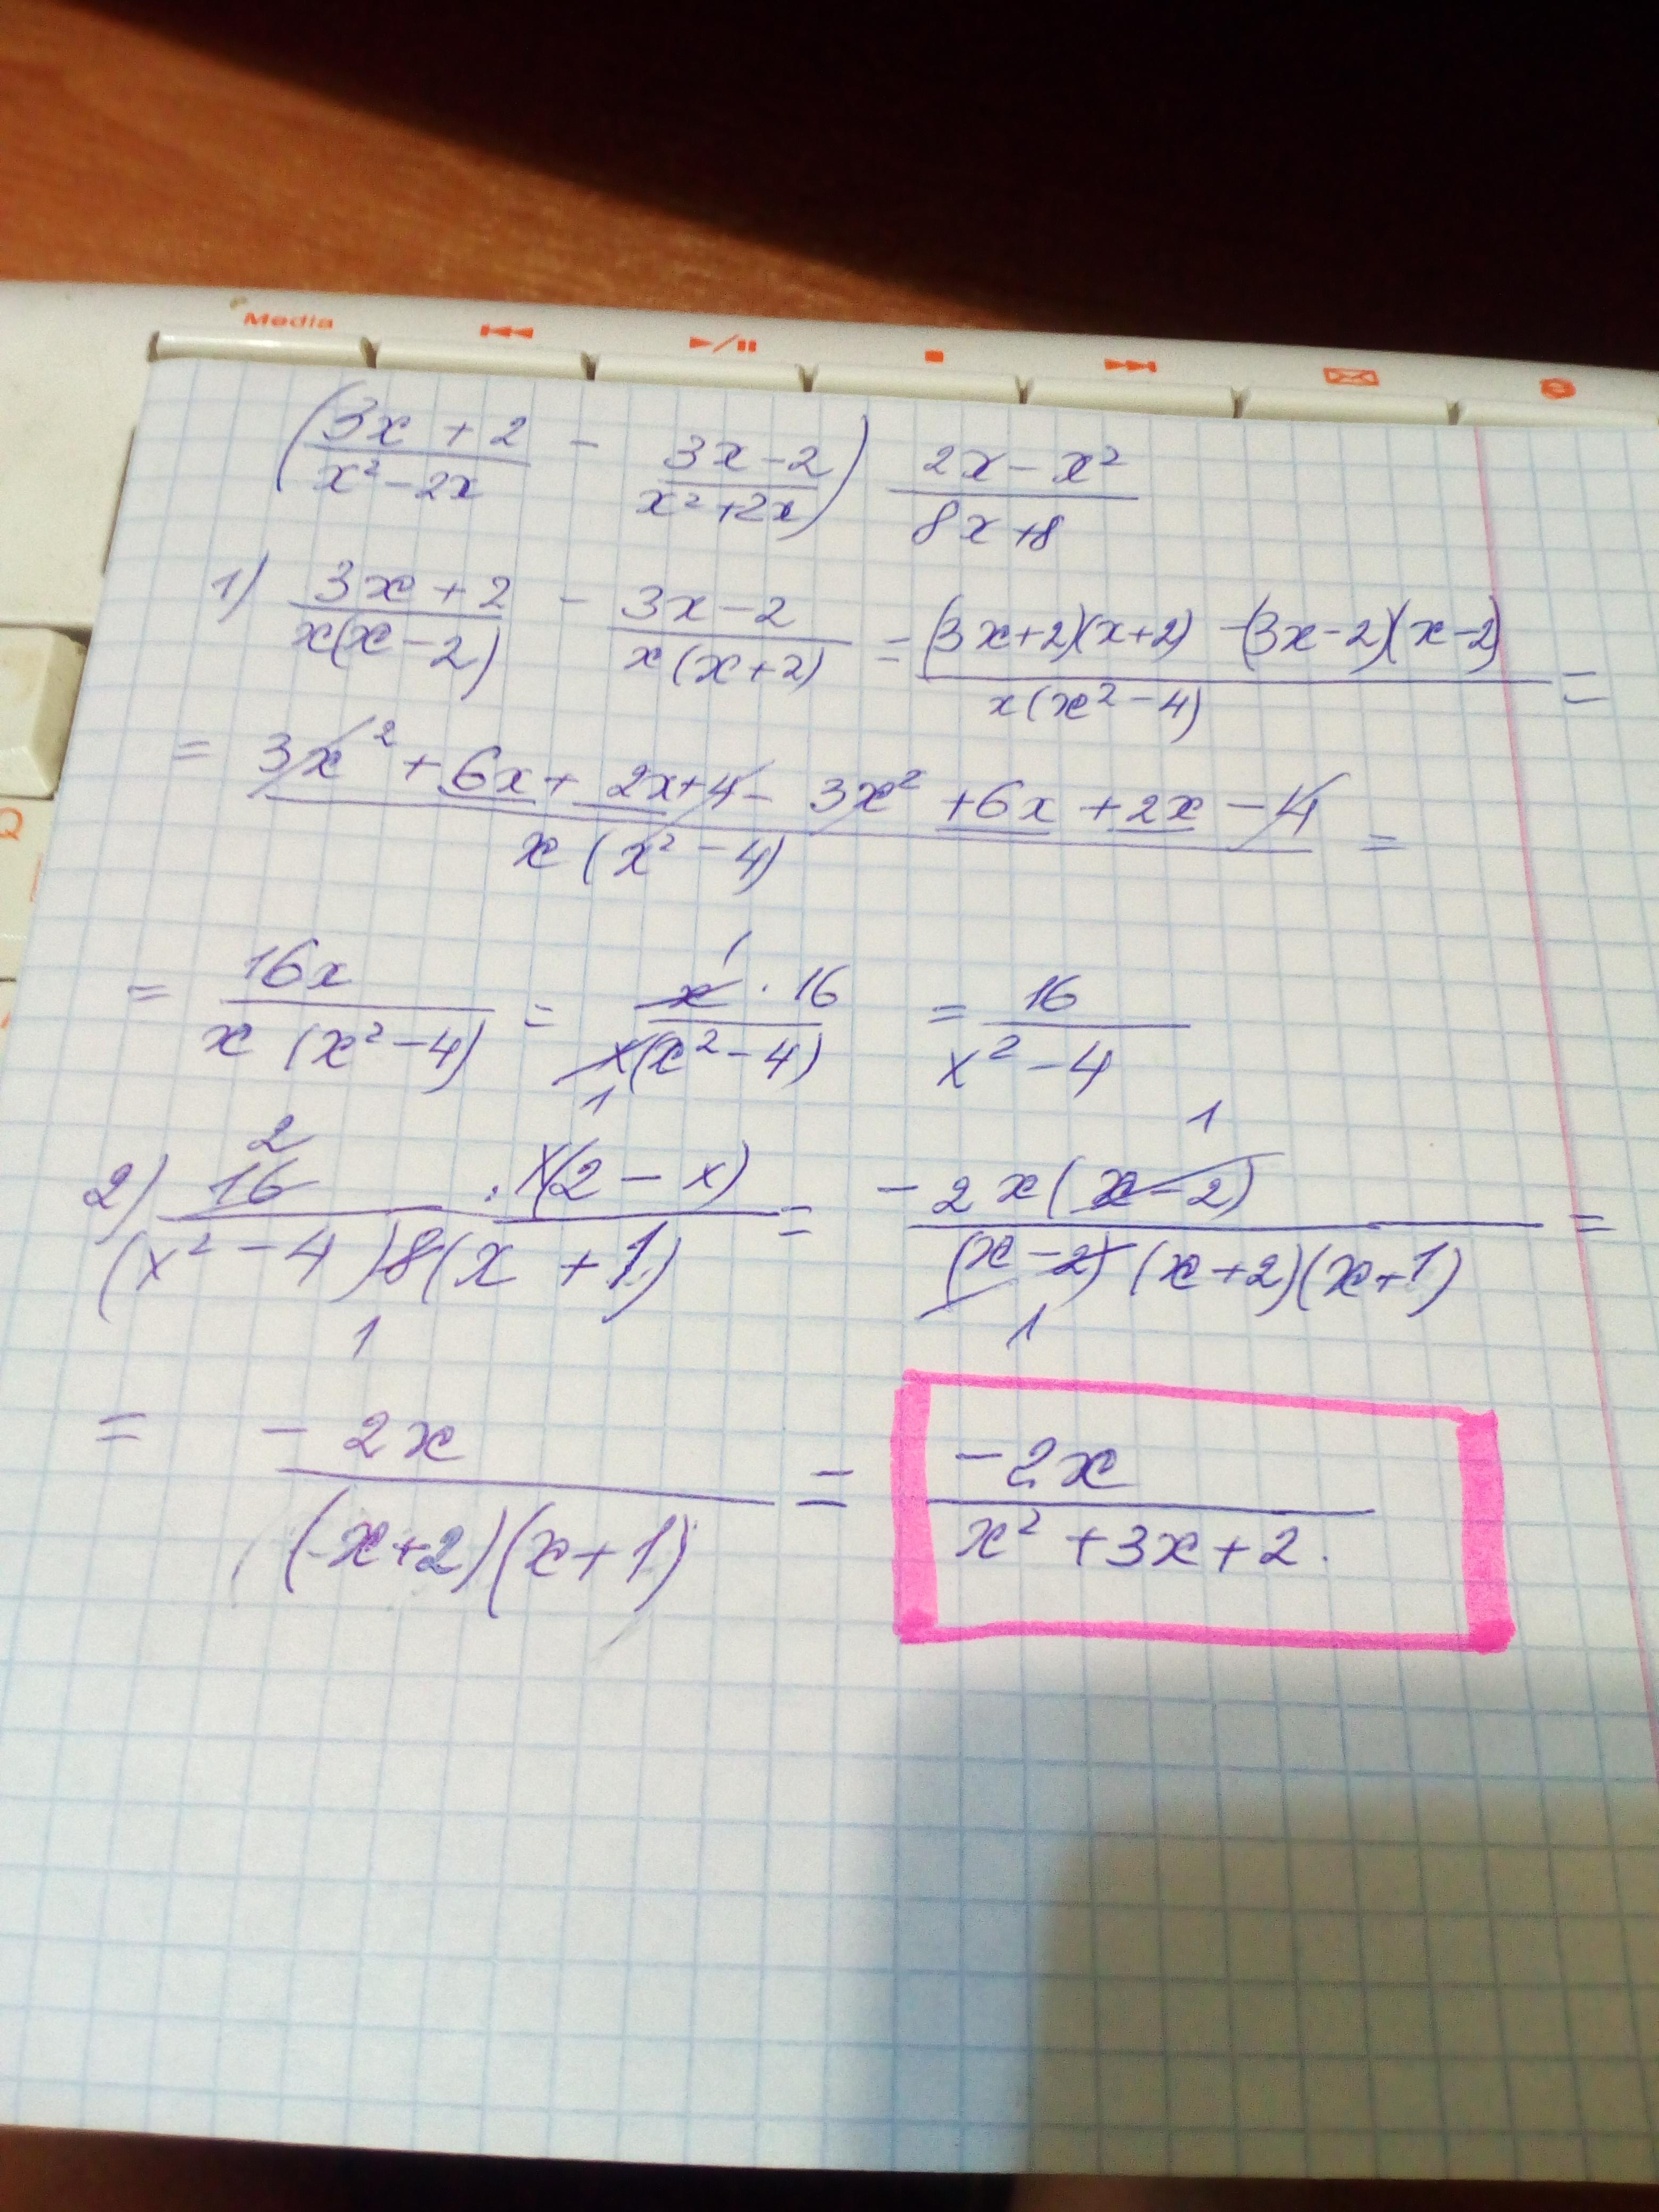 Media
Q
(3x + 2 / x² - 2x - 3x - 2 / x² + 2x) 2x - x² / 8x + 8
1) 3x + 2 / x(x - 2) - 3x - 2 / x(x + 2) = (3x+2)(x+2) - (3x-2)(x-2) / x(x² - 4) =
= 3x² + 6x + 2x + 4 - 3x² + 6x + 2x - 4 / x(x² - 4) =
= 16x / x (x² - 4) = x¹ · 16 / x(x² - 4) 1 = 16 / x² - 4
2) 2 16 · x(2 - x) / (x² - 4) 8(x + 1) 1 = - 2x(x - 2) 1 / (x - 2)(x+2)(x+1) 1 =
= - 2x / (x+2)(x+1) = -2x / x² + 3x + 2.